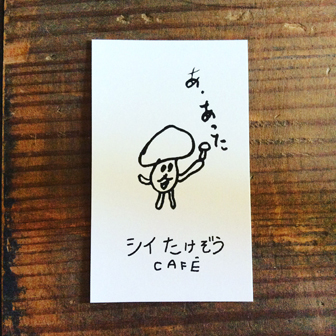 あ、あった
シイたけぞう
CAFÉ